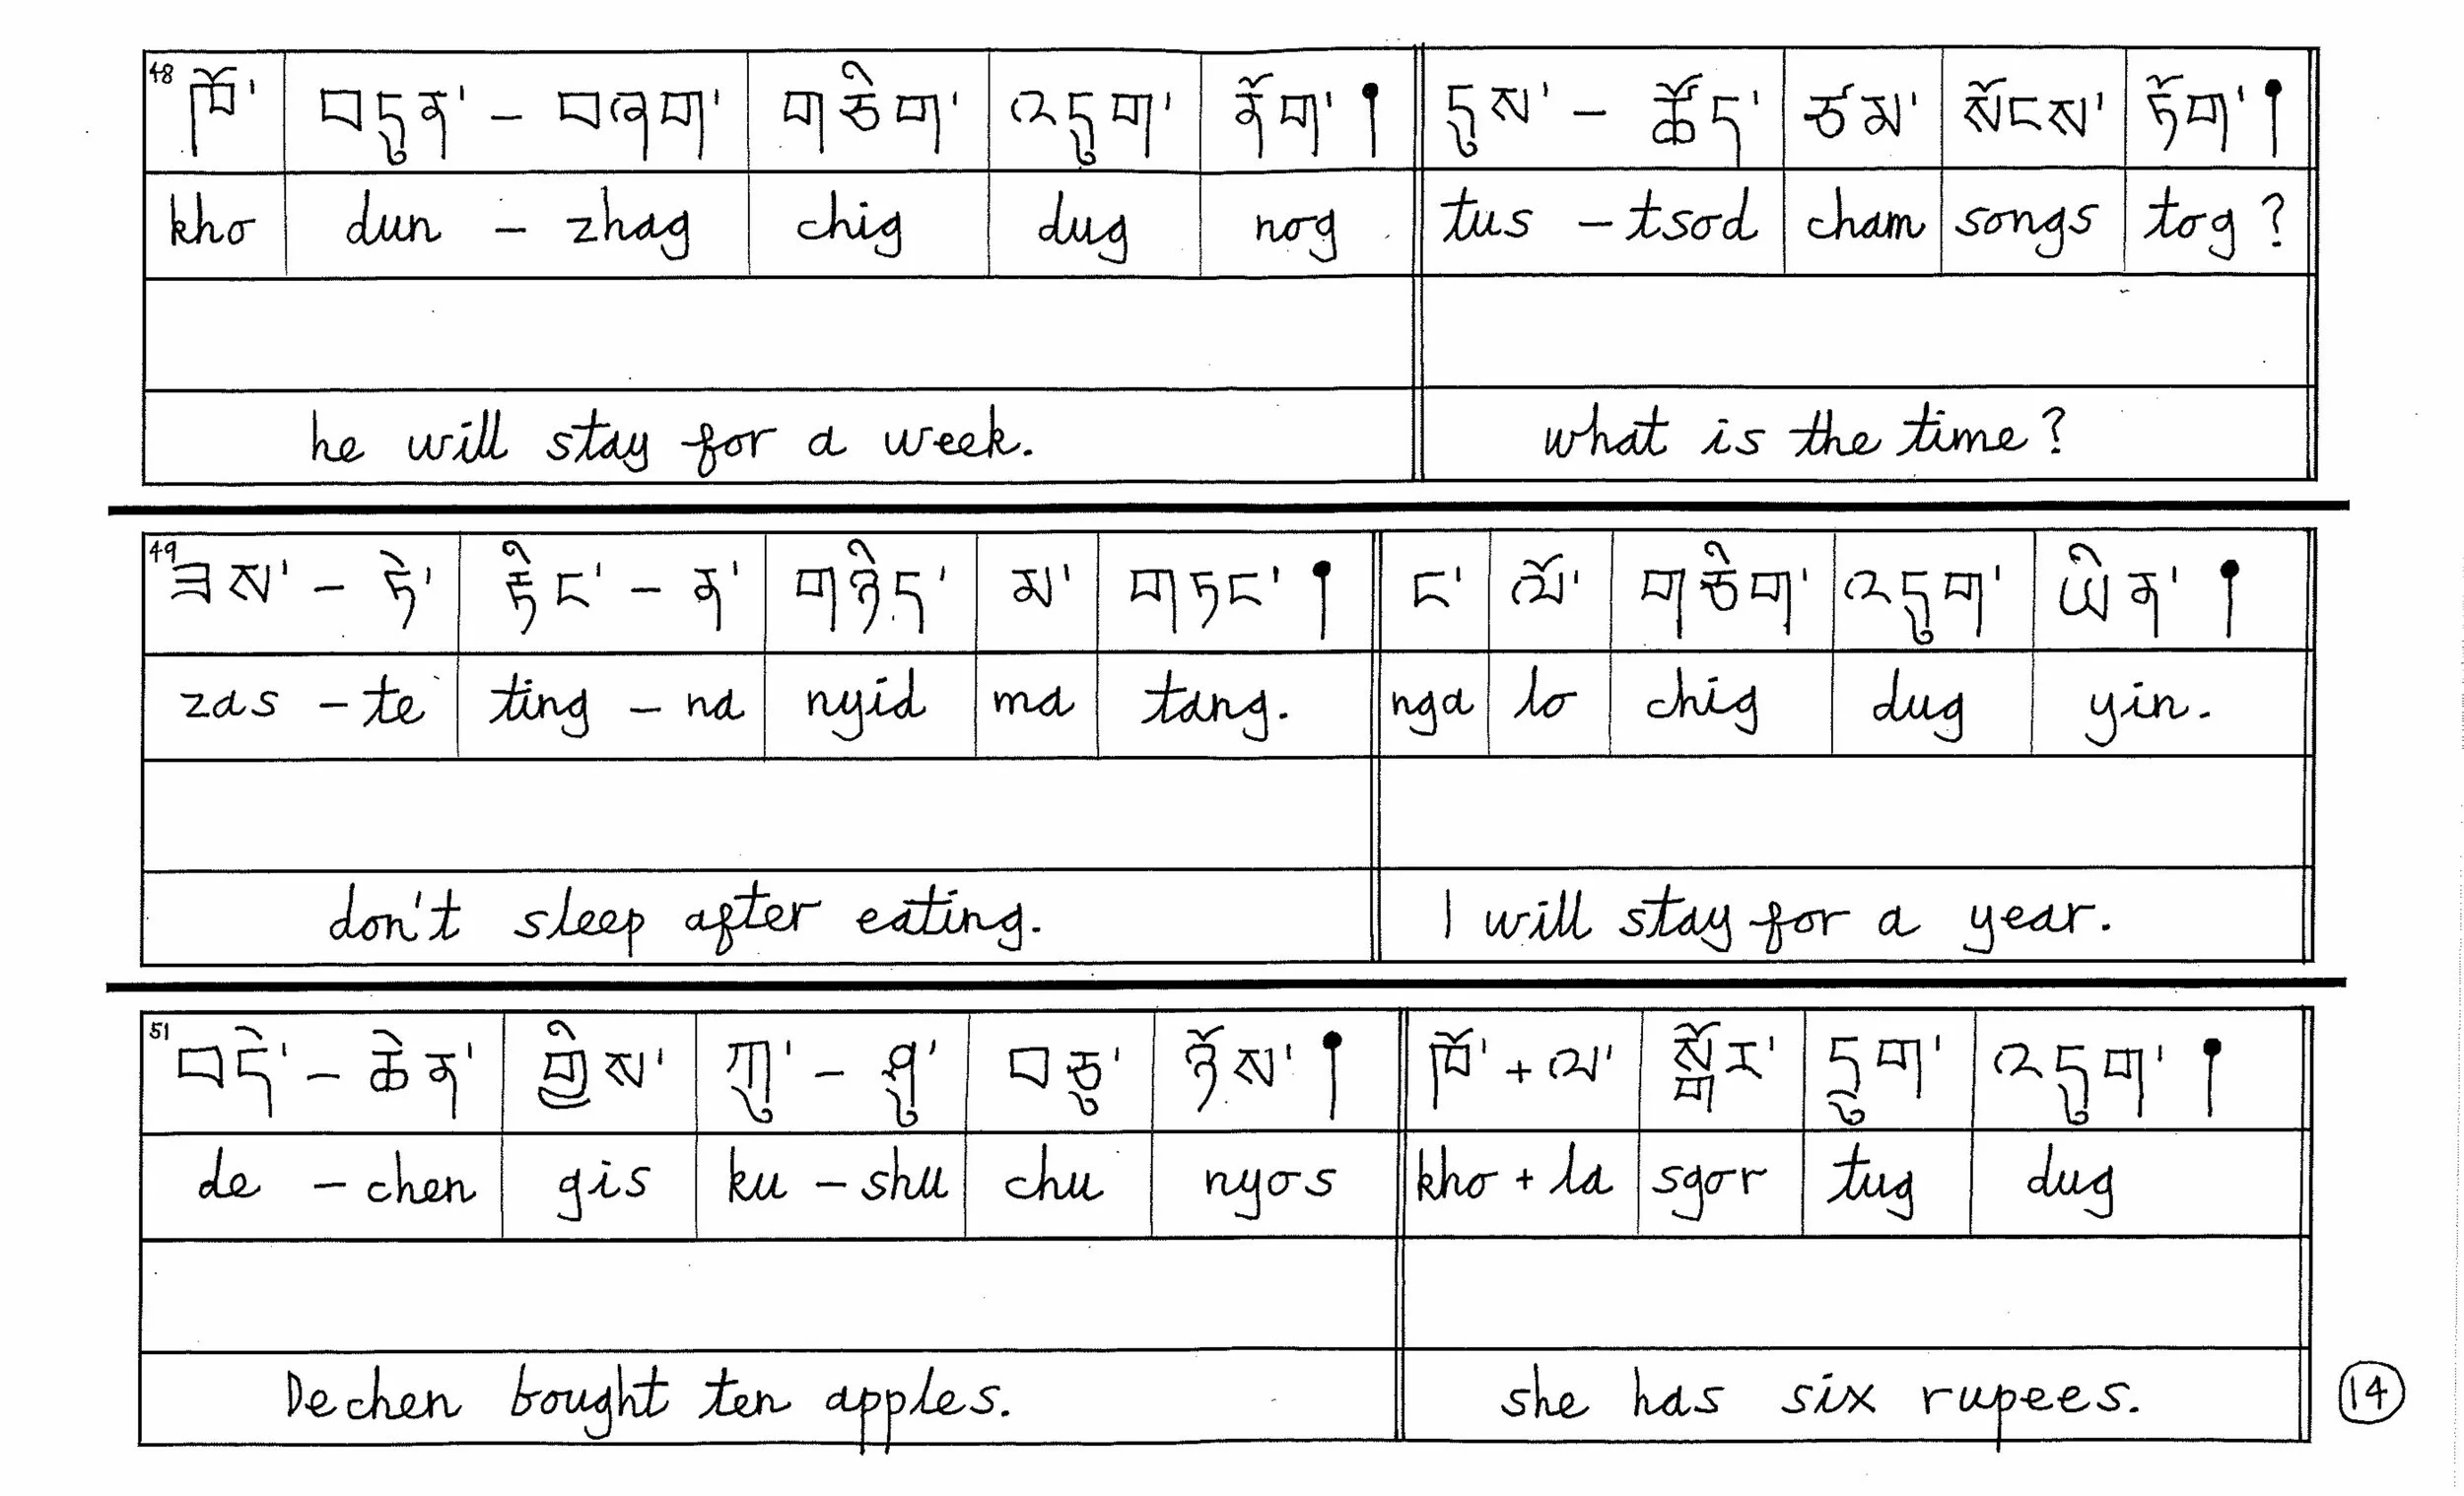 48 ཁོ་ བདུན་ - བཞག་ གཅིག་ འདུག་ ནོག་ ། དུས་ - ཚོད་ ཙམ་ སོངས་ ཏོག་ །
kho dun - zhag chig dug nog tus - tsod cham songs tog ?
he will stay for a week. what is the time?
49 ཟས་ - ཏེ་ ཏིང་ - ན་ གཉིད་ མ་ གཏང་ ། ང་ ལོ་ གཅིག་ འདུག་ ཡིན་ །
zas - te ting - na nyid ma tang. nga lo chig dug yin.
don't sleep after eating. I will stay for a year.
51 བདེ་ - ཆེན་ གྱིས་ ཀུ་ - ཤུ་ བཅུ་ ཉོས་ ། ཁོ་ + ལ་ སྒོར་ དྲུག་ འདུག་ །
de - chen gis ku - shu chu nyos kho + la sgor tug dug
Dechen bought ten apples. she has six rupees.
14